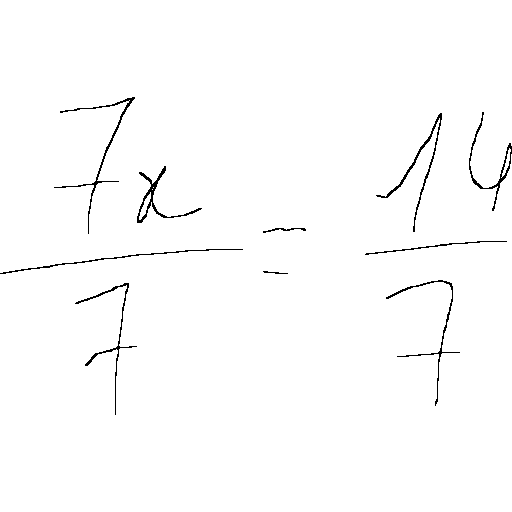 7x/7 = 14/7